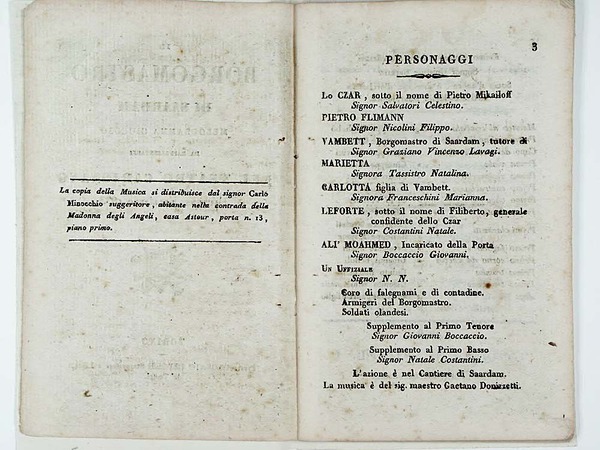 La copia della Musica si distribuisce dal signor Carlo
Minocchio suggeritore, abitante nella contrada della
Madonna degli Angeli, casa Astour, porta n. 13,
piano primo.
3
PERSONAGGI
Lo CZAR, sotto il nome di Pietro Mikailoff
Signor Salvatori Celestino.
PIETRO FLIMANN
Signor Nicolini Filippo.
VAMBETT, Borgomastro di Saardam, tutore di
Signor Graziano Vincenzo Lavagi.
MARIETTA
Signora Tassistro Natalina.
CARLOTTA figlia di Vambett.
Signora Franceschini Marianna.
LEFORTE, sotto il nome di Filiberto, generale
confidente dello Czar
Signor Costantini Natale.
ALI' MOAHMED, Incaricato della Porta
Signor Boccaccio Giovanni.
Un Uffiziale
Signor N. N.
Coro di falegnami e di contadine.
Armigeri del Borgomastro.
Soldati olandesi.
Supplemento al Primo Tenore
Signor Giovanni Boccaccio.
Supplemento al Primo Basso
Signor Natale Costantini.
L'azione è nel Cantiere di Saardam.
La musica è del sig. maestro Gaetano Donizzetti.